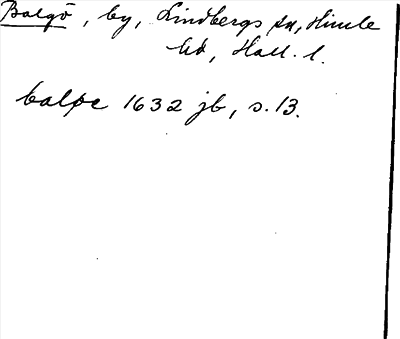 Balgö, by, Lindbergs sn, Himle
hd, Hall. l.
baløe 1632 jb, s. 13.